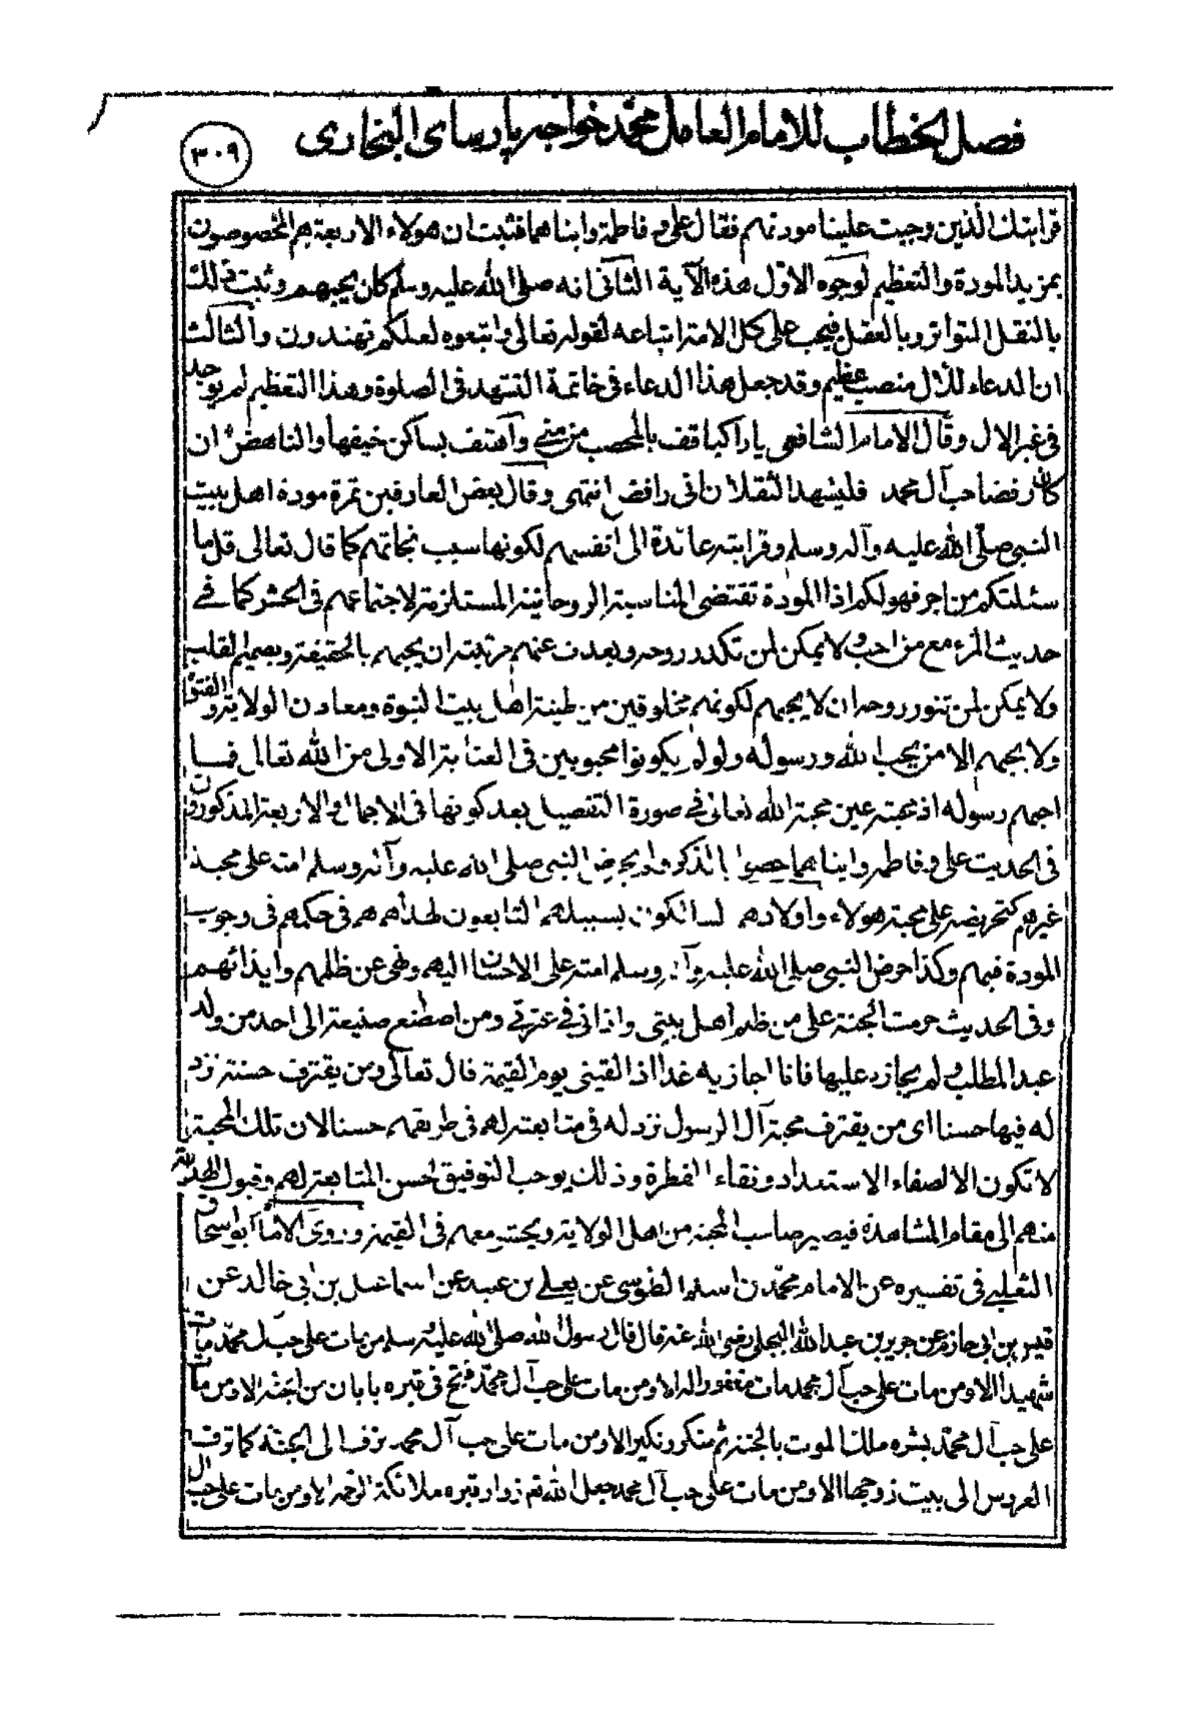 فصل الخطاب للامام العامل محمد خواجه پارسای البخاری
۳۰۹
قرابتك الذين وجبت علينا مودتهم فقال علي و فاطمة وابناهما فثبت ان هولاء الاربعة هم المخصوصون
بمزيد المودة والتعظيم لوجوه الاول هذه الآية الثاني انه صلى الله عليه وسلم كان يحبهم وثبت ذلك
بالنقل المتواتر وبالعقل فيجب على كل الامة اتباعه لقوله تعالى واتبعوه لعلكم تهتدون والثالث
ان الدعاء للآل منصب عظيم وقد جعل هذا الدعاء في خاتمة التشهد في الصلوة وهذا التعظيم لم يوجد
في غير الال وقال الامام الشافعي يا راكبا قف بالمحصب من منى واهتف بساكن خيفها والناهض ان
كان رفضا حب آل محمد فليشهد الثقلان اني رافض انتهى وقال بعض العارفين ثمرة مودة اهل بيت
النبي صلى الله عليه وآله وسلم وقرابته عائدة الى انفسهم لكونها سبب نجاتهم كما قال تعالى قل ما
سئلتكم من اجر فهو لكم اذا المودة تقتضي المناسبة الروحانية المستلزمة لاجتماعهم في الحشر كما في
حديث المرء مع من احب ولا يمكن لمن تكدر روحه وبعدت عنهم مرتبته ان يحبهم بالحقيقة وبصميم القلب
ولا يمكن لمن تنور روحه ان لا يحبهم لكونهم مخلوقين من طينة اهل بيت النبوة ومعادن الولاية والفتوة
ولا يحبهم الا من يحب الله ورسوله ولو لم يكونوا محبوبين في العناية الاولى من الله تعالى فما
احبهم رسوله اذ محبته عين محبة الله تعالى في صورة التفصيل بعد كونها في الاجمال والاربعة المذكورون
في الحديث علي و فاطمه وابناهما خصوا بالذكر ولم يحرض النبي صلى الله عليه وآله وسلم امته على محبة
غيرهم كتحريضه على محبة هولاء واولادهم السالكون بسبيلهم التابعون لهداهم هم في حكمهم في وجوب
المودة فيهم وكذا حرض النبي صلى الله عليه وآله وسلم امته على الاحسان اليهم ونهى عن ظلمهم وايذائهم
وفي الحديث حرمت الجنة على من ظلم اهل بيتي واذاني في عترتي ومن اصطنع صنيعة الى احد من ولد
عبد المطلب ولم يجازه عليها فانا اجازيه غدا اذا لقيني يوم القيمة قال تعالى ومن يقترف حسنة نزد
له فيها حسنا اى من يقترف محبة آل الرسول نزد له في متابعته لهم في طريقهم حسنا لان تلك المحبة
لا تكون الا لصفاء الاستعداد ونقاء الفطرة وذلك يوجب التوفيق لحسن المتابعة لهم وقبول الهداية
منهم الى مقام المشاهدة فيصير صاحب المحبة من اهل الولاية ويحشر معهم في القيمة وروى الامام ابو اسحاق
الثعلبي في تفسيره عن الامام محمد بن اسلم الطوسي عن يعلى بن عبيد عن اسماعيل بن ابي خالد عن
قيس بن ابي حازم عن جرير بن عبد الله البجلي رضي الله عنه قال قال رسول الله صلى الله عليه وسلم من مات على حب آل محمد مات
شهيدا الا ومن مات على حب آل محمد مات مغفورا له الا ومن مات على حب آل محمد فتح في قبره بابان من الجنة الا ومن مات
على حب آل محمد بشره ملك الموت بالجنة ثم منكر ونكير الا ومن مات على حب آل محمد يزف الى الجنة كما تزف
العروس الى بيت زوجها الا ومن مات على حب آل محمد جعل الله تم زوار قبره ملائكة الرحمة الا ومن مات على حب آل